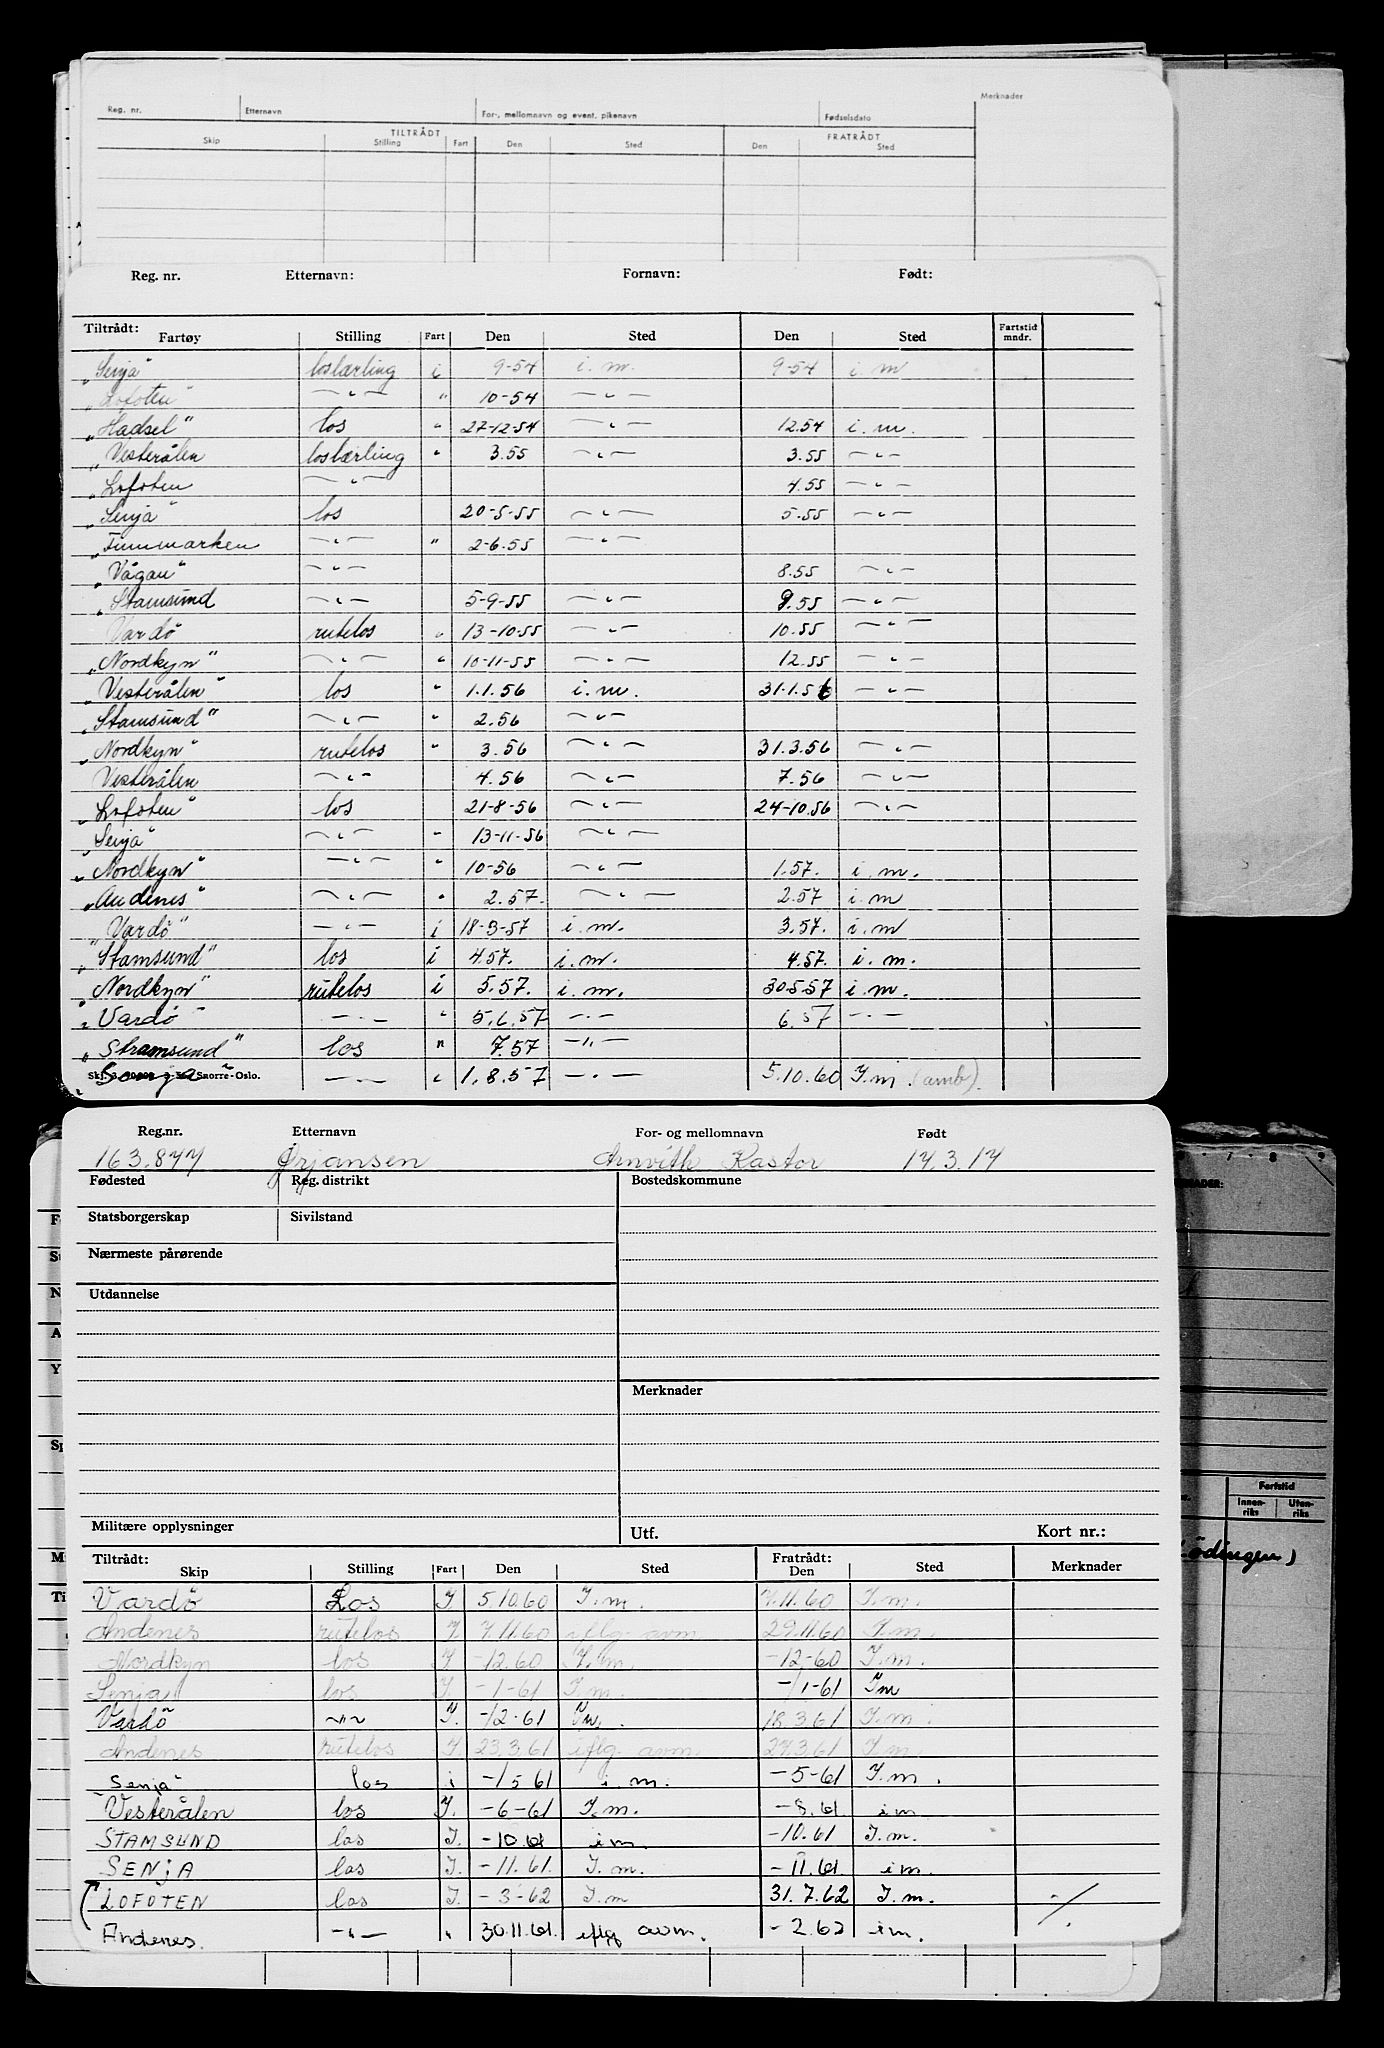 Reg. nr. Etternavn For-, mellomnavn og event. pikenavn Fødselsdato Merknader
TILTRÅDT FRATRÅDT
Skip Stilling Fart Den Sted Den Sted
Reg. nr. Etternavn: Fornavn: Født:
Tiltrådt:
Fartøy Stilling Fart Den Sted Den Sted Fartstid mndr.
"Senja" loslærling i 9-54 i. m. 9-54 i. m
"Lofoten" —"— " 10-54 —"—
"Hadsel" los " 27-12-54 —"— 12.54 i. m.
"Vesterålen loslærling " 3.55 —"— 3.55 —"—
"Lofoten —"— 4.55 —"—
"Senja" los 20-5-55 —"— 5.55 —"—
"Finnmarken —"— " 2-6.55 —"—
"Vågan" —"— 8.55 —"—
"Stamsund —"— 5-9-55 —"— 9.55 —"—
Vardö rutelos " 13-10-55 —"— 10.55 —"—
"Nordkyn" —"— " 10-11-55 —"— 12.55 —"—
"Vesterålen" los " 1.1.56 i. m. 31.1.56 —"—
"Stamsund" —"— " 2.56 —"—
"Nordkyn" rutelos " 3.56 —"— 31.3.56 —"—
Vesterålen —"— 4.56 —"— 7.56 —"—
"Lofoten" los 21-8-56 —"— 24-10.56 —"—
"Senja" —"— " 13-11-56 —"—
"Nordkyn" —"— " 10-56 —"— 1.57. i. m.
"Andenes" —"— " 2.57. —"— 2.57 i. m
"Vardö" —"— i 18-3-57 i. m. 3.57. i. m
"Stamsund" los i 4.57. i. m. 4.57. i. m.
"Nordkyn" rutelos i 5.57. i. m. 30.5.57 i. m.
"Vardö" —"— " 5.6.57 —"— 6.57 —"—
"Stramsund" los " 7.57 —"—
"Senja" —"— " 1.8.57 —"— 5.10.60 I.m (amb).
Snorre-Oslo.
Reg.nr. Etternavn For- og mellomnavn Født
163.877 Ørjansen Arnvith Kastor 17.3.17
Fødested Reg. distrikt Bostedskommune
Statsborgerskap Sivilstand
Nærmeste pårørende
Utdannelse
Merknader
Militære opplysninger Utf. Kort nr.:
Tiltrådt: Fratrådt:
Skip Stilling Fart Den Sted Den Sted Merknader
Vardö Los I 5.10.60 I.m. 7.11.60 I.m.
Andenes rutelos I 7.11.60 iflg. avm 29.11.60 I.m.
Nordkyn los I -12.60 I.m -12-60 I.m.
Senja los I -1-61 I.m. -1-61 Im
Vardö —"— I. -12-61 I.m. 18.3.61 I.m.
Andenes rutelos I. 23.3.61 iflg. avm. 27.3.61 I.m
Senja" los i -15 61 i. m. -5-61 I.m.
Vesterålen los I. -6-61 I.m. -8.61 i m
STAMSUND los I. -10.61 i m. -10.61 I.m.
SENjA los I. -11.61. I.m. -11.61. i m.
LOFOTEN los I. -3-62 I.m 31.7.62 I.m. ./.
Andenes. —"— " 30.11.61. iflg avm. -2.62 i m.
Fartstid
Innen-riks Uten-riks
Lödingen)